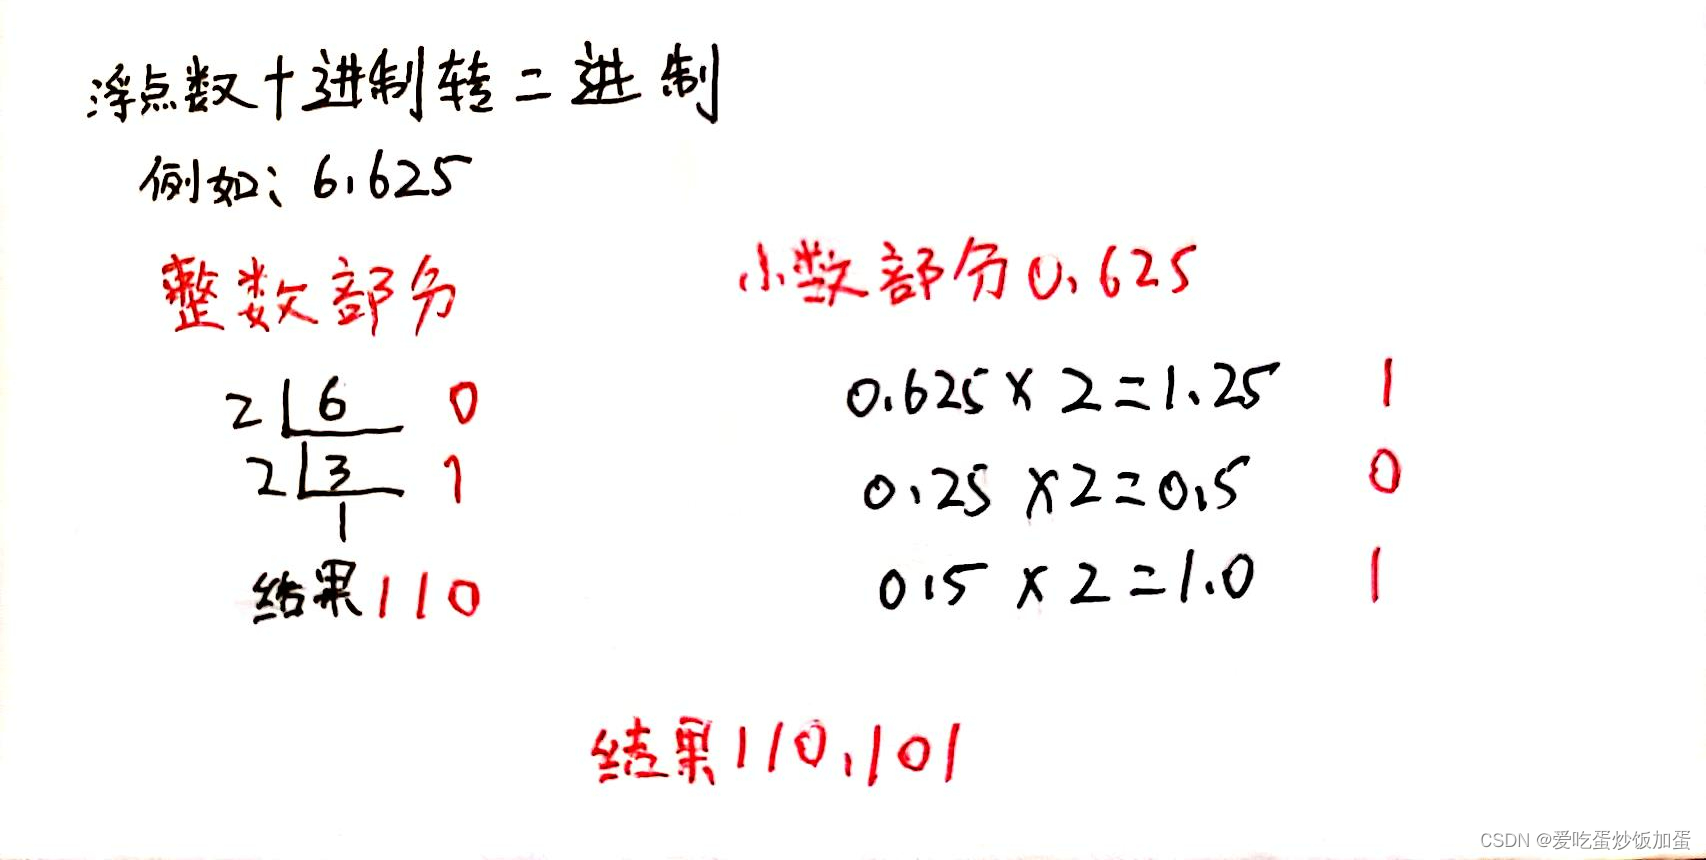 浮点数十进制转二进制
例如: 6.625
整数部分
2 6 0
2 3 1
1
结果110
小数部分0.625
0.625×2=1.25 1
0.25×2=0.5 0
0.5×2=1.0 1
结果110.101
CSDN @爱吃蛋炒饭加蛋